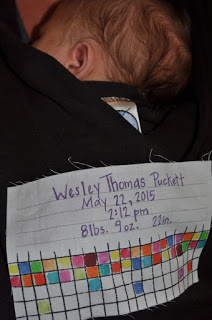 Wesley Thomas Puckett
May 22, 2015
2:12 pm
8lbs. 9oz. 22in.